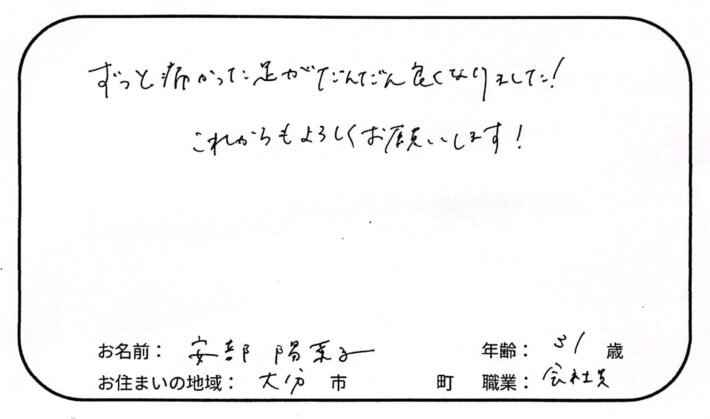 ずっと痛かった足がだんだん良くなりました!
これからもよろしくお願いします!
お名前: 安部 陽菜子 年齢: 31 歳
お住まいの地域: 大分 市 町 職業: 会社員